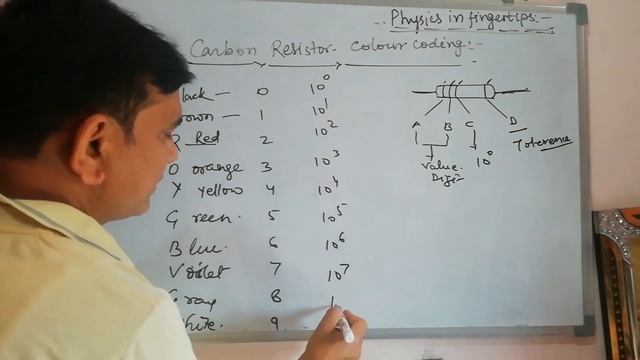 Physics in fingertips:-
Carbon Resistor colour coding:-
lack - 0 10^0
rown - 1 10^1
R Red 2 10^2
O orange 3 10^3
Y yellow 4 10^4
Green. 5 10^5
Blue. 6 10^6
Voilet 7 10^7
Gray 8 1
white. 9
A B C D
Tolerence
value. 10^0
Digit